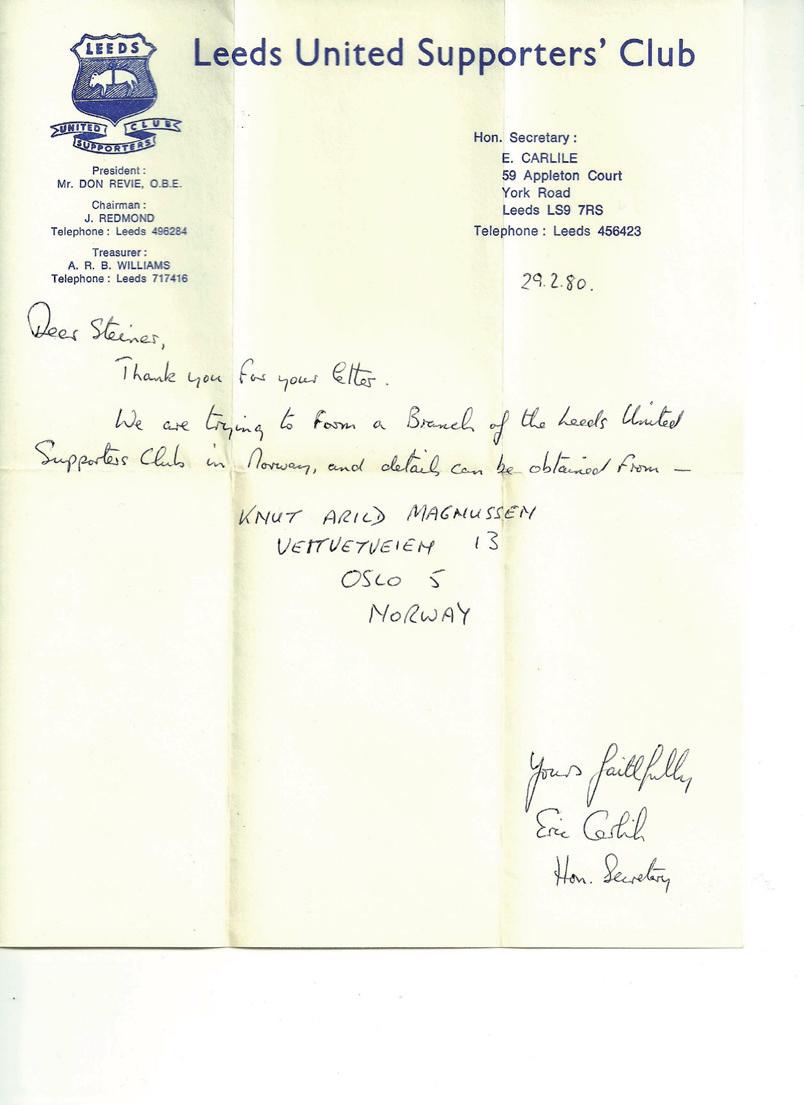 LEEDS
UNITED CLUB
SUPPORTERS
Leeds United Supporters' Club
President :
Mr. DON REVIE, O.B.E.
Chairman :
J. REDMOND
Telephone : Leeds 496284
Treasurer :
A. R. B. WILLIAMS
Telephone : Leeds 717416
Hon. Secretary :
E. CARLILE
59 Appleton Court
York Road
Leeds LS9 7RS
Telephone : Leeds 456423
29.2.80.
Dear Steinar,
Thank you for your letter.
We are trying to form a Branch of the Leeds United
Supporters Club in Norway, and details can be obtained from —
KNUT ARILD MAGNUSSEN
VEITVETVEIEN 13
OSLO 5
NORWAY
Yours faithfully
Eric Carlile
Hon. Secretary